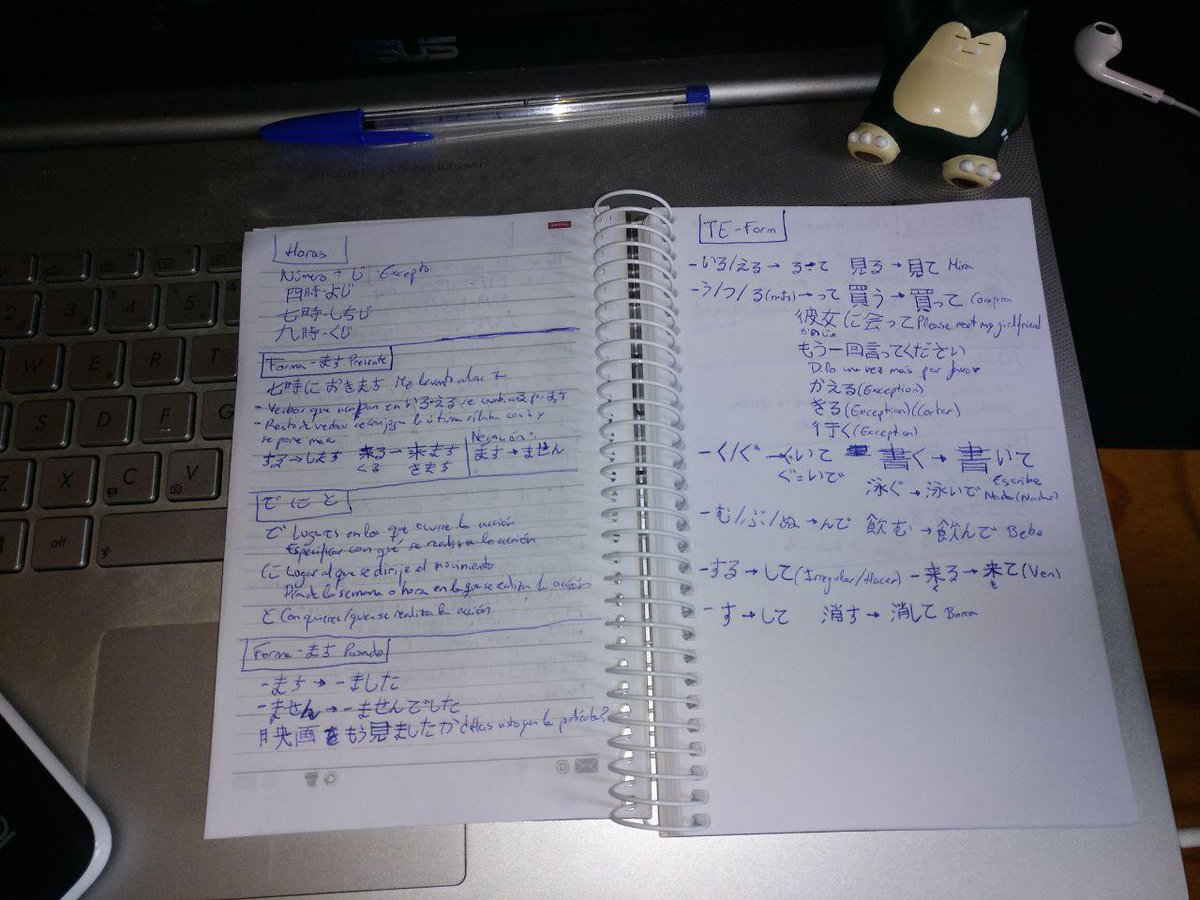 ASUS
Horas
Número + じ Excepto
四時-よじ
七時-しちじ
九時-くじ
Forma-ます Presente
七時におきます Me levanto a las 7
- Verbos que acaban en いる える se cambia る por ます
- Resto de verbos se conjuga la última sílaba con i y
se pone masu
する→します 来る→来ます
くる きます
Negación:
ます→ません
で に と
で Lugares en los que ocurre la acción
Especificar con qué se realiza la acción
に Lugar al que se dirije el movimiento
Día de la semana o hora en la que se realiza la acción
と Con quien se realiza la acción
Forma-ます Pasado
-ます → -ました
-ません → -ませんでした
映画をもう見ましたか ¿Has visto ya la película?
TE-Form
-いる/える → る→て 見る→見て Mira
-う/つ/る → って 買う→買って Compra
彼女に会って Please meet my girlfriend
かのじょ
もう一回言ってください
Dilo una vez más por favor
かえる (Exception)
きる (Exception) (Cortar)
行く (Exception)
-く/ぐ く=いて 書く→書いて
ぐ=いで Escribe
泳ぐ→泳いで Nada (Nadar)
-む/ぶ/ぬ→んで 飲む→飲んで Bebe
-する→して (Irregular/Hacer) -来る→来て (Ven)
く き
-す→して 消す→消して Borra
W E R T
S D F G
Z X C V
alt